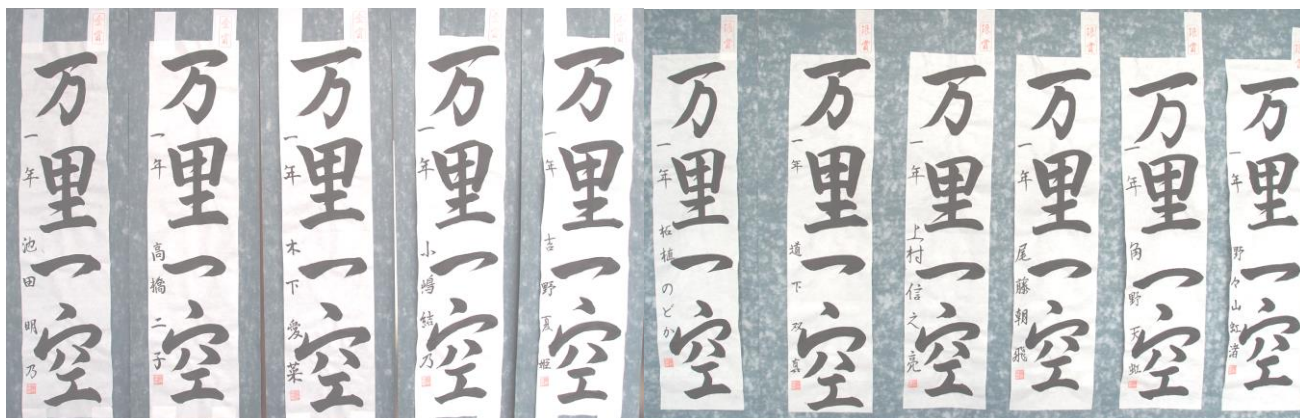 万里一空
一年 池田 明乃
万里一空
一年 高橋 二子
万里一空
一年 木下 愛菜
万里一空
一年 小嶋 結乃
万里一空
一年 吉野 夏姫
万里一空
一年 柘植 のどか
万里一空
一年 下 双真
万里一空
一年 上村 信之亮
万里一空
一年 尾藤 朝飛
万里一空
一年 角野 天虹
万里一空
一年 野々山 虹渚